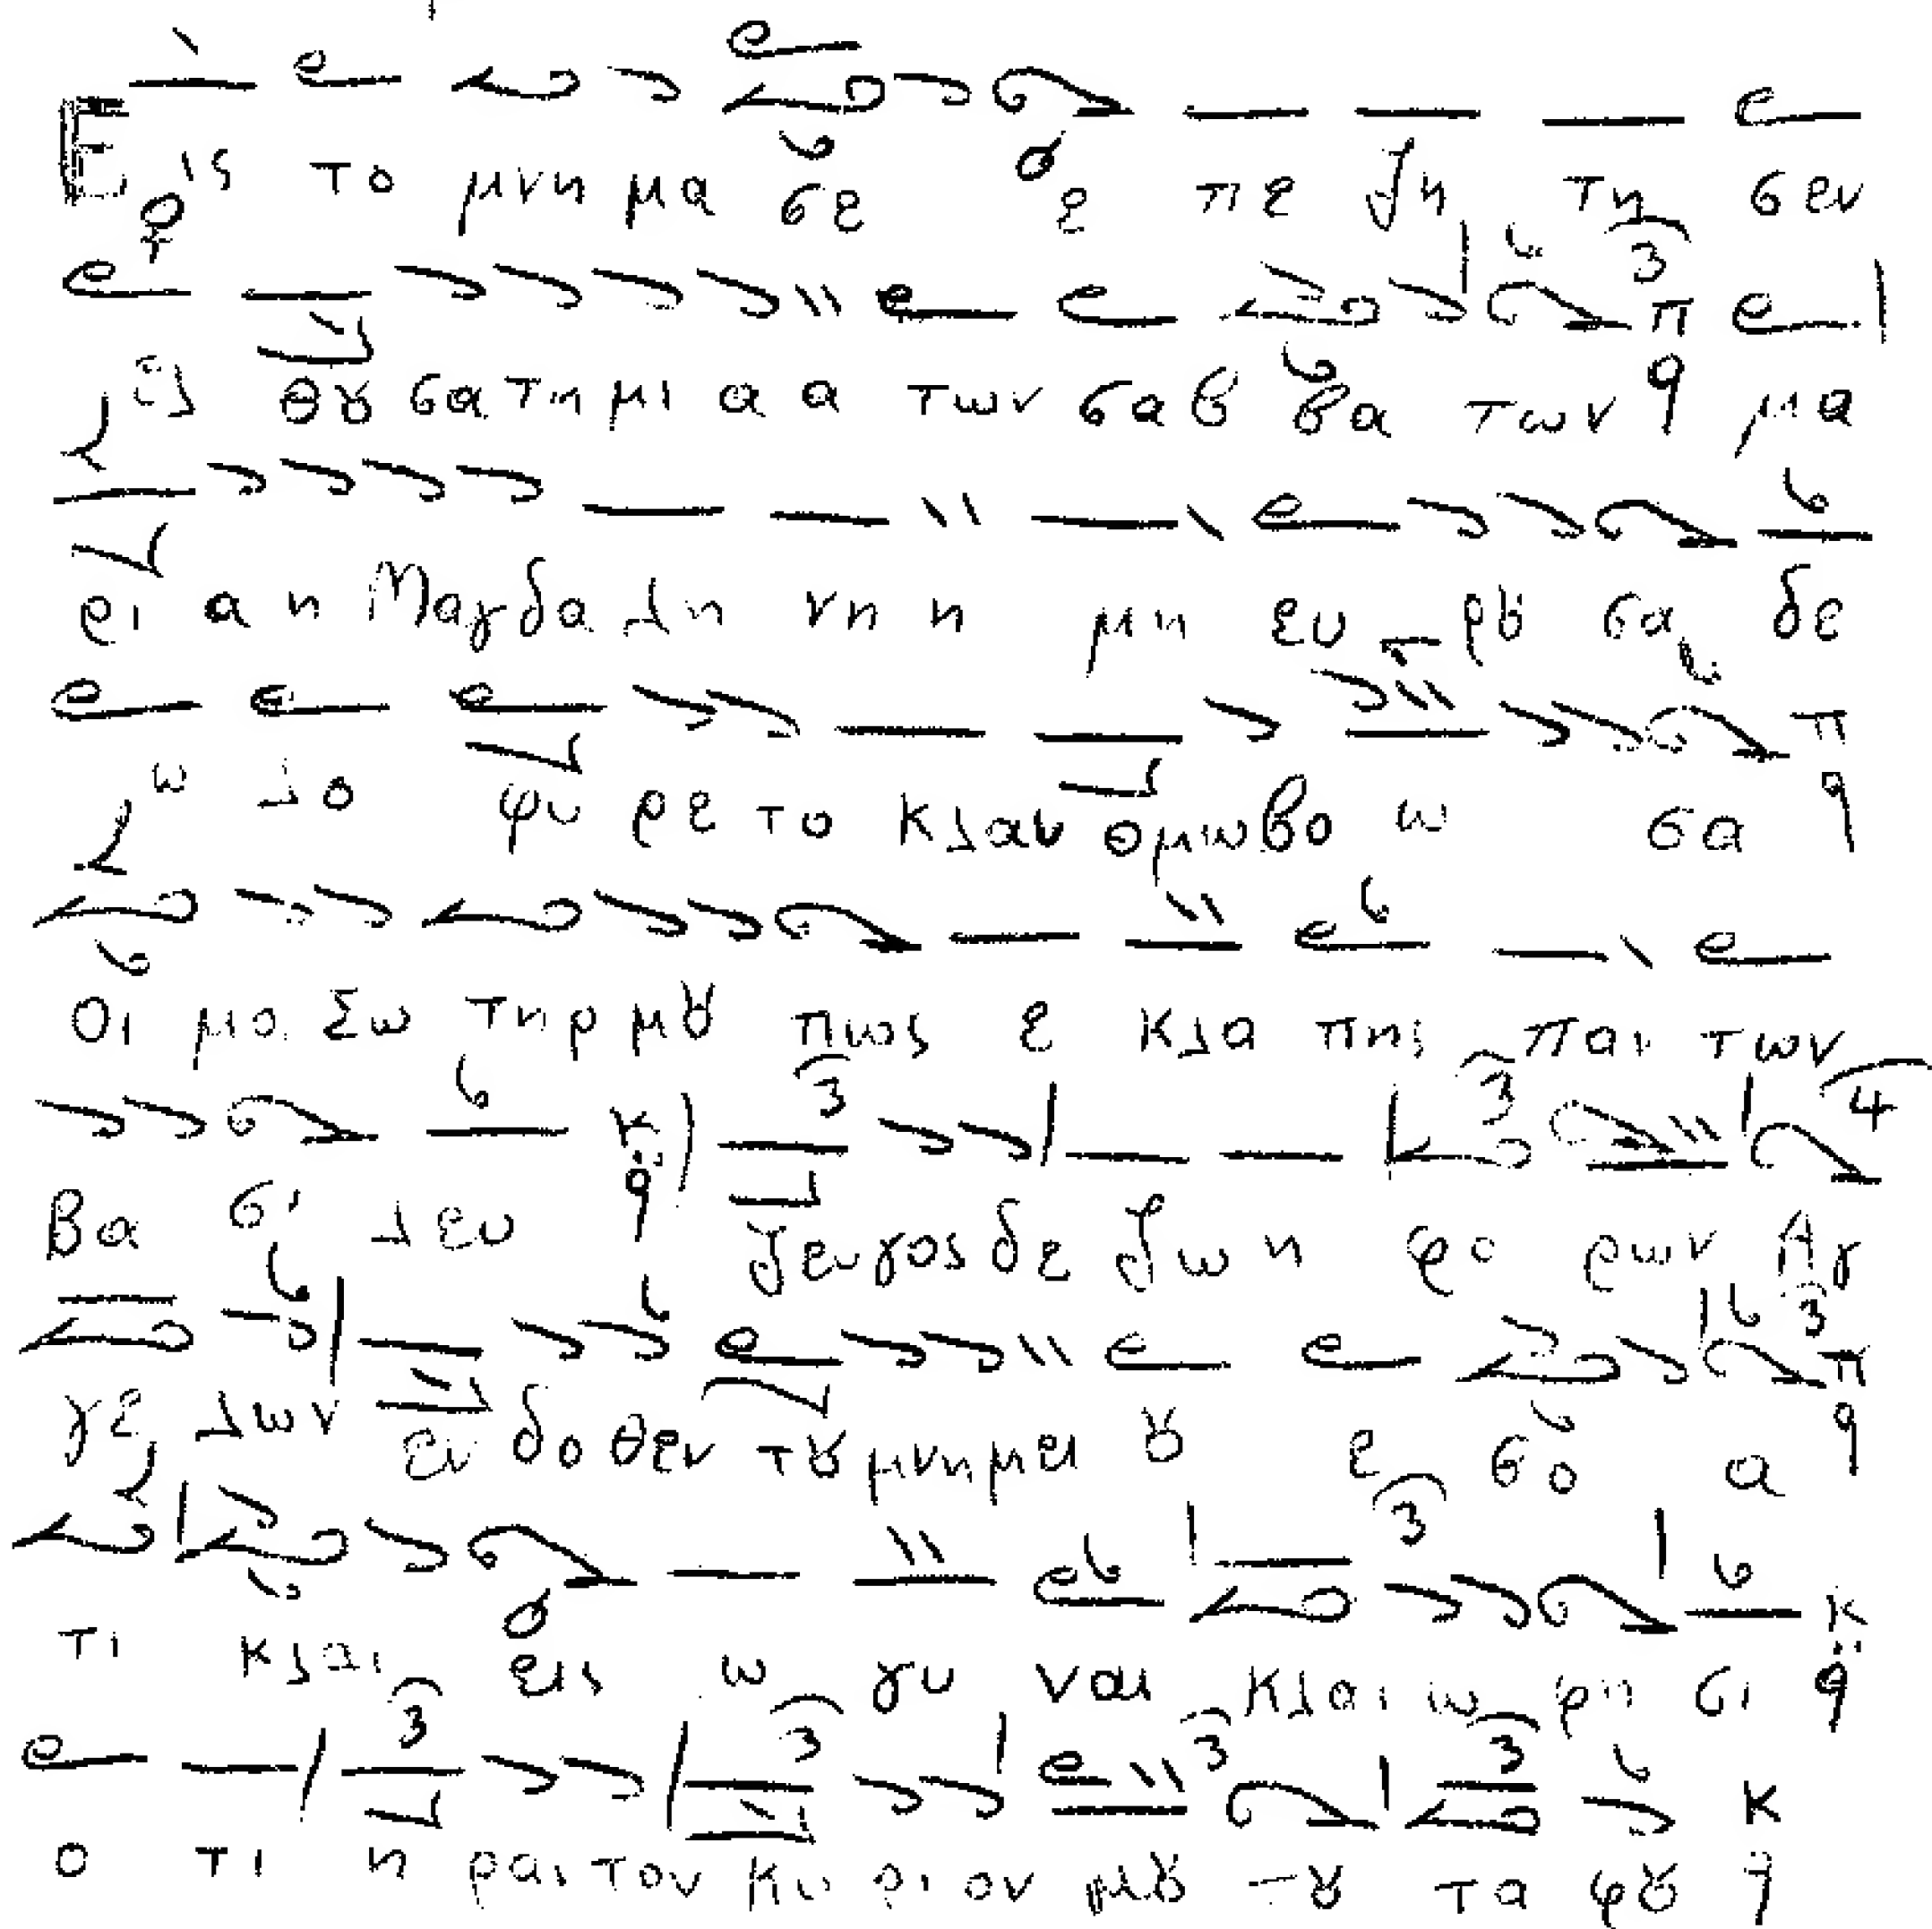 Εις το μνημα σε ε πε ζη τη σεν
ελ θȣ σα τη μι α α των σαβ βα των μα
ρι α η Μαγδα λη νη η μη ευ ρȣ σα δε
ω λο φυ ρε το κλαυ θμω βο ω σα
Οι μοι Σω τηρ μȣ πως ε κλα πης παν των
Βα σι λευ ζευγος δε ζω η φο ρων Αγ
γε λων εν δο θεν τȣ μνημει ȣ ε βο α
τι κλαι εις ω γυ ναι κλαι ω φη σι
ο τι η ραν τον Κυ ρι ον μȣ τȣ τα φȣ